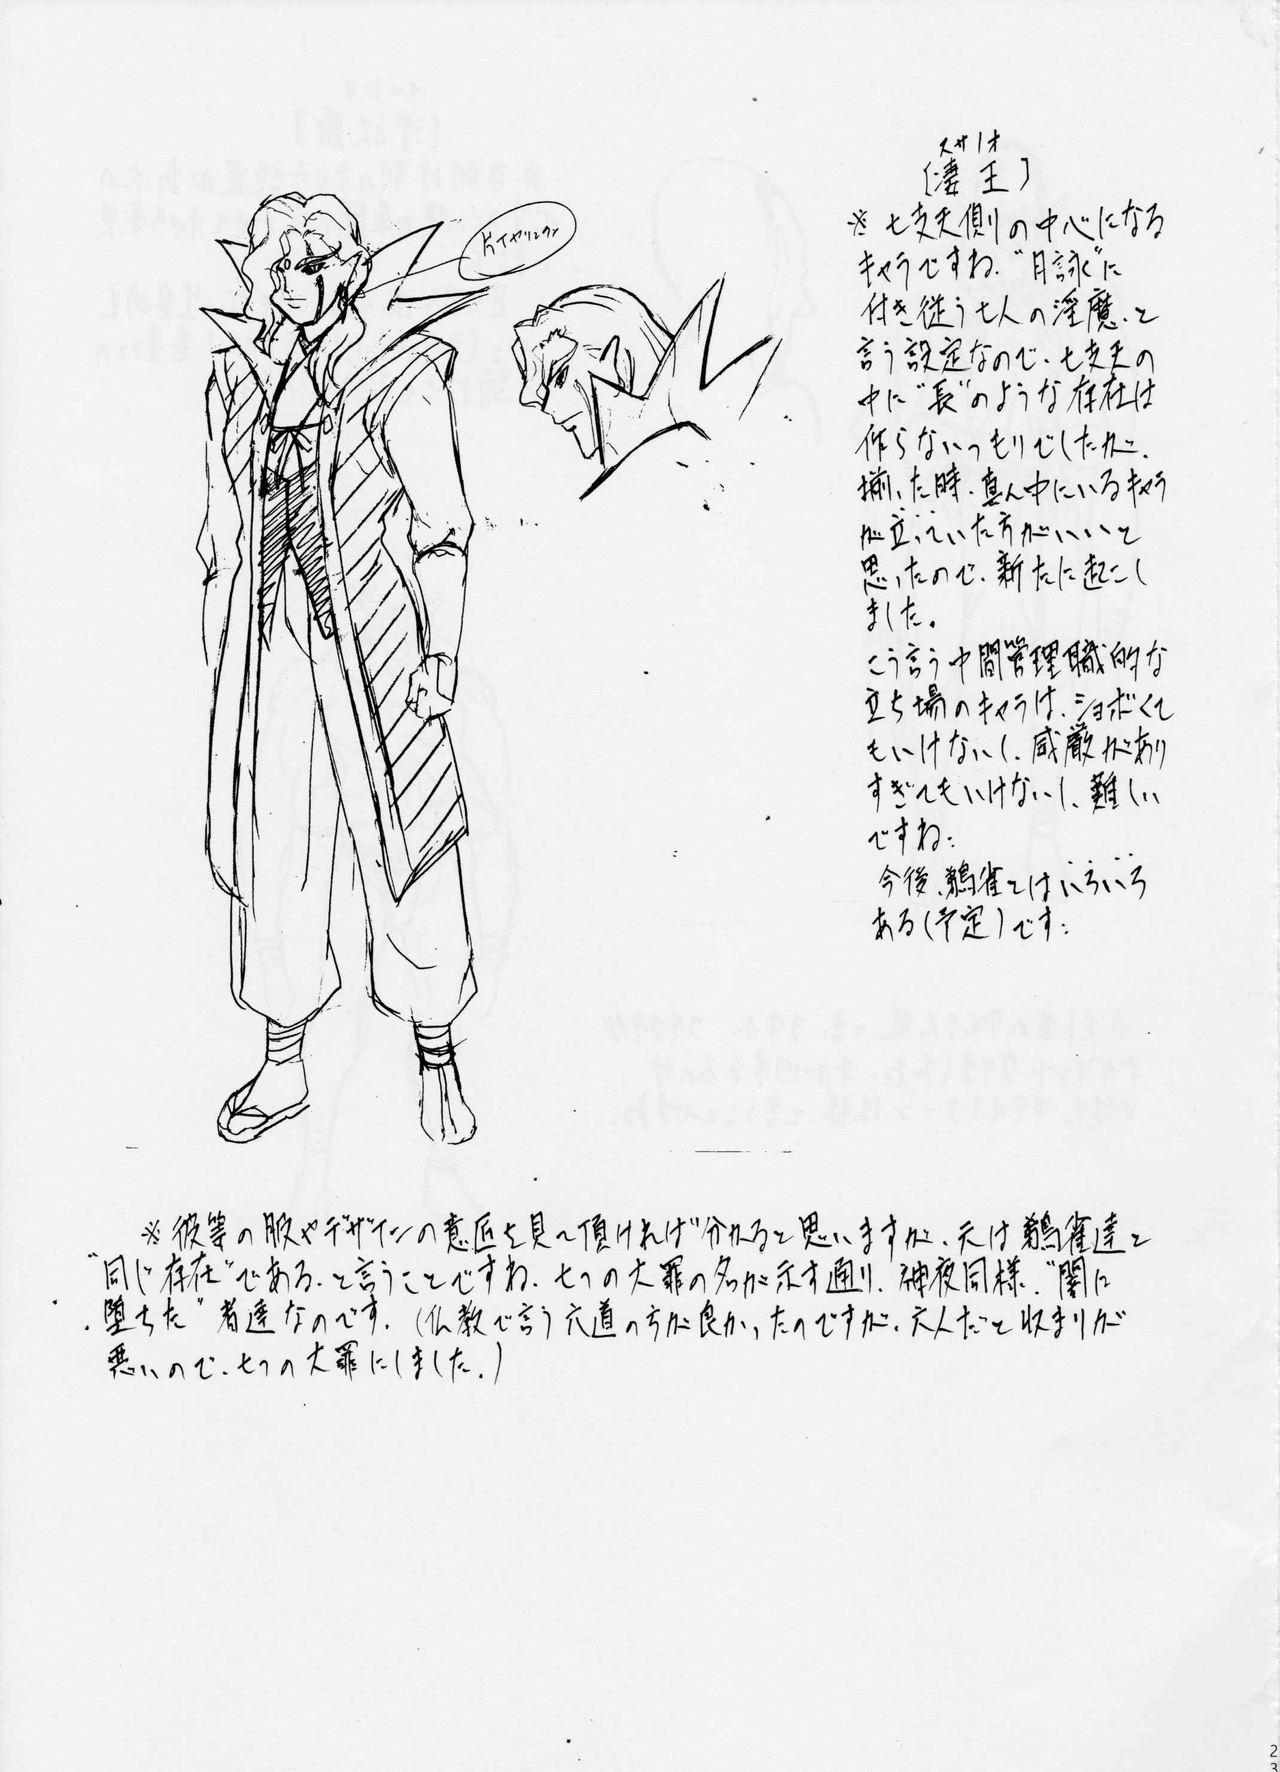 スサノオ
〔凄王〕
※七支天側の中心になる
キャラですね。"月詠"に
付き従う七人の淫魔、と
言う設定なので、七支天の
中に"長"のような存在は
作らないつもりでしたが、
揃った時、真ん中にいるキャラ
が立っていた方がいいと
思ったので、新たに起こし
ました。
こう言う中間管理職的な
立ち場のキャラは、ショボくて
もいけないし、威厳があり
すぎてもいけないし、難しい
ですね:
今後、鵺雀とはいろいろ
ある(予定)です:
片イヤリング
※彼等の服やデザインの意匠を見て頂ければ分かると思いますが、元は鵺雀達と
"同じ存在"である、と言うことですね。七つの大罪の名が示す通り、神夜同様、"闇に
堕ちた"者達なのです。(仏教で言う六道の方が良かったのですが、六人だと収まりが
悪いので、七つの大罪にしました。)
23